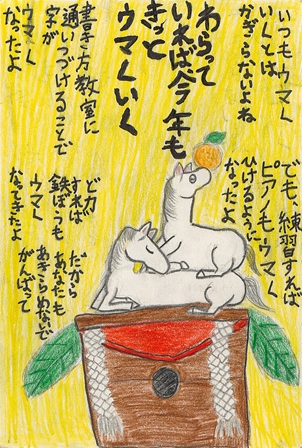 いつもウマく
いくとは
かぎらないよね
でも、練習すれば
ピアノもウマく
ひけるように
なったよ
わらって
いれば今年も
きっと
ウマくいく
書き方教室に
通いつづけることで
字が
ウマく
なったよ
ど力
すれば
鉄ぼうも
ウマく
なってきたよ
だから
あなたも
あきらめないで
がんばって